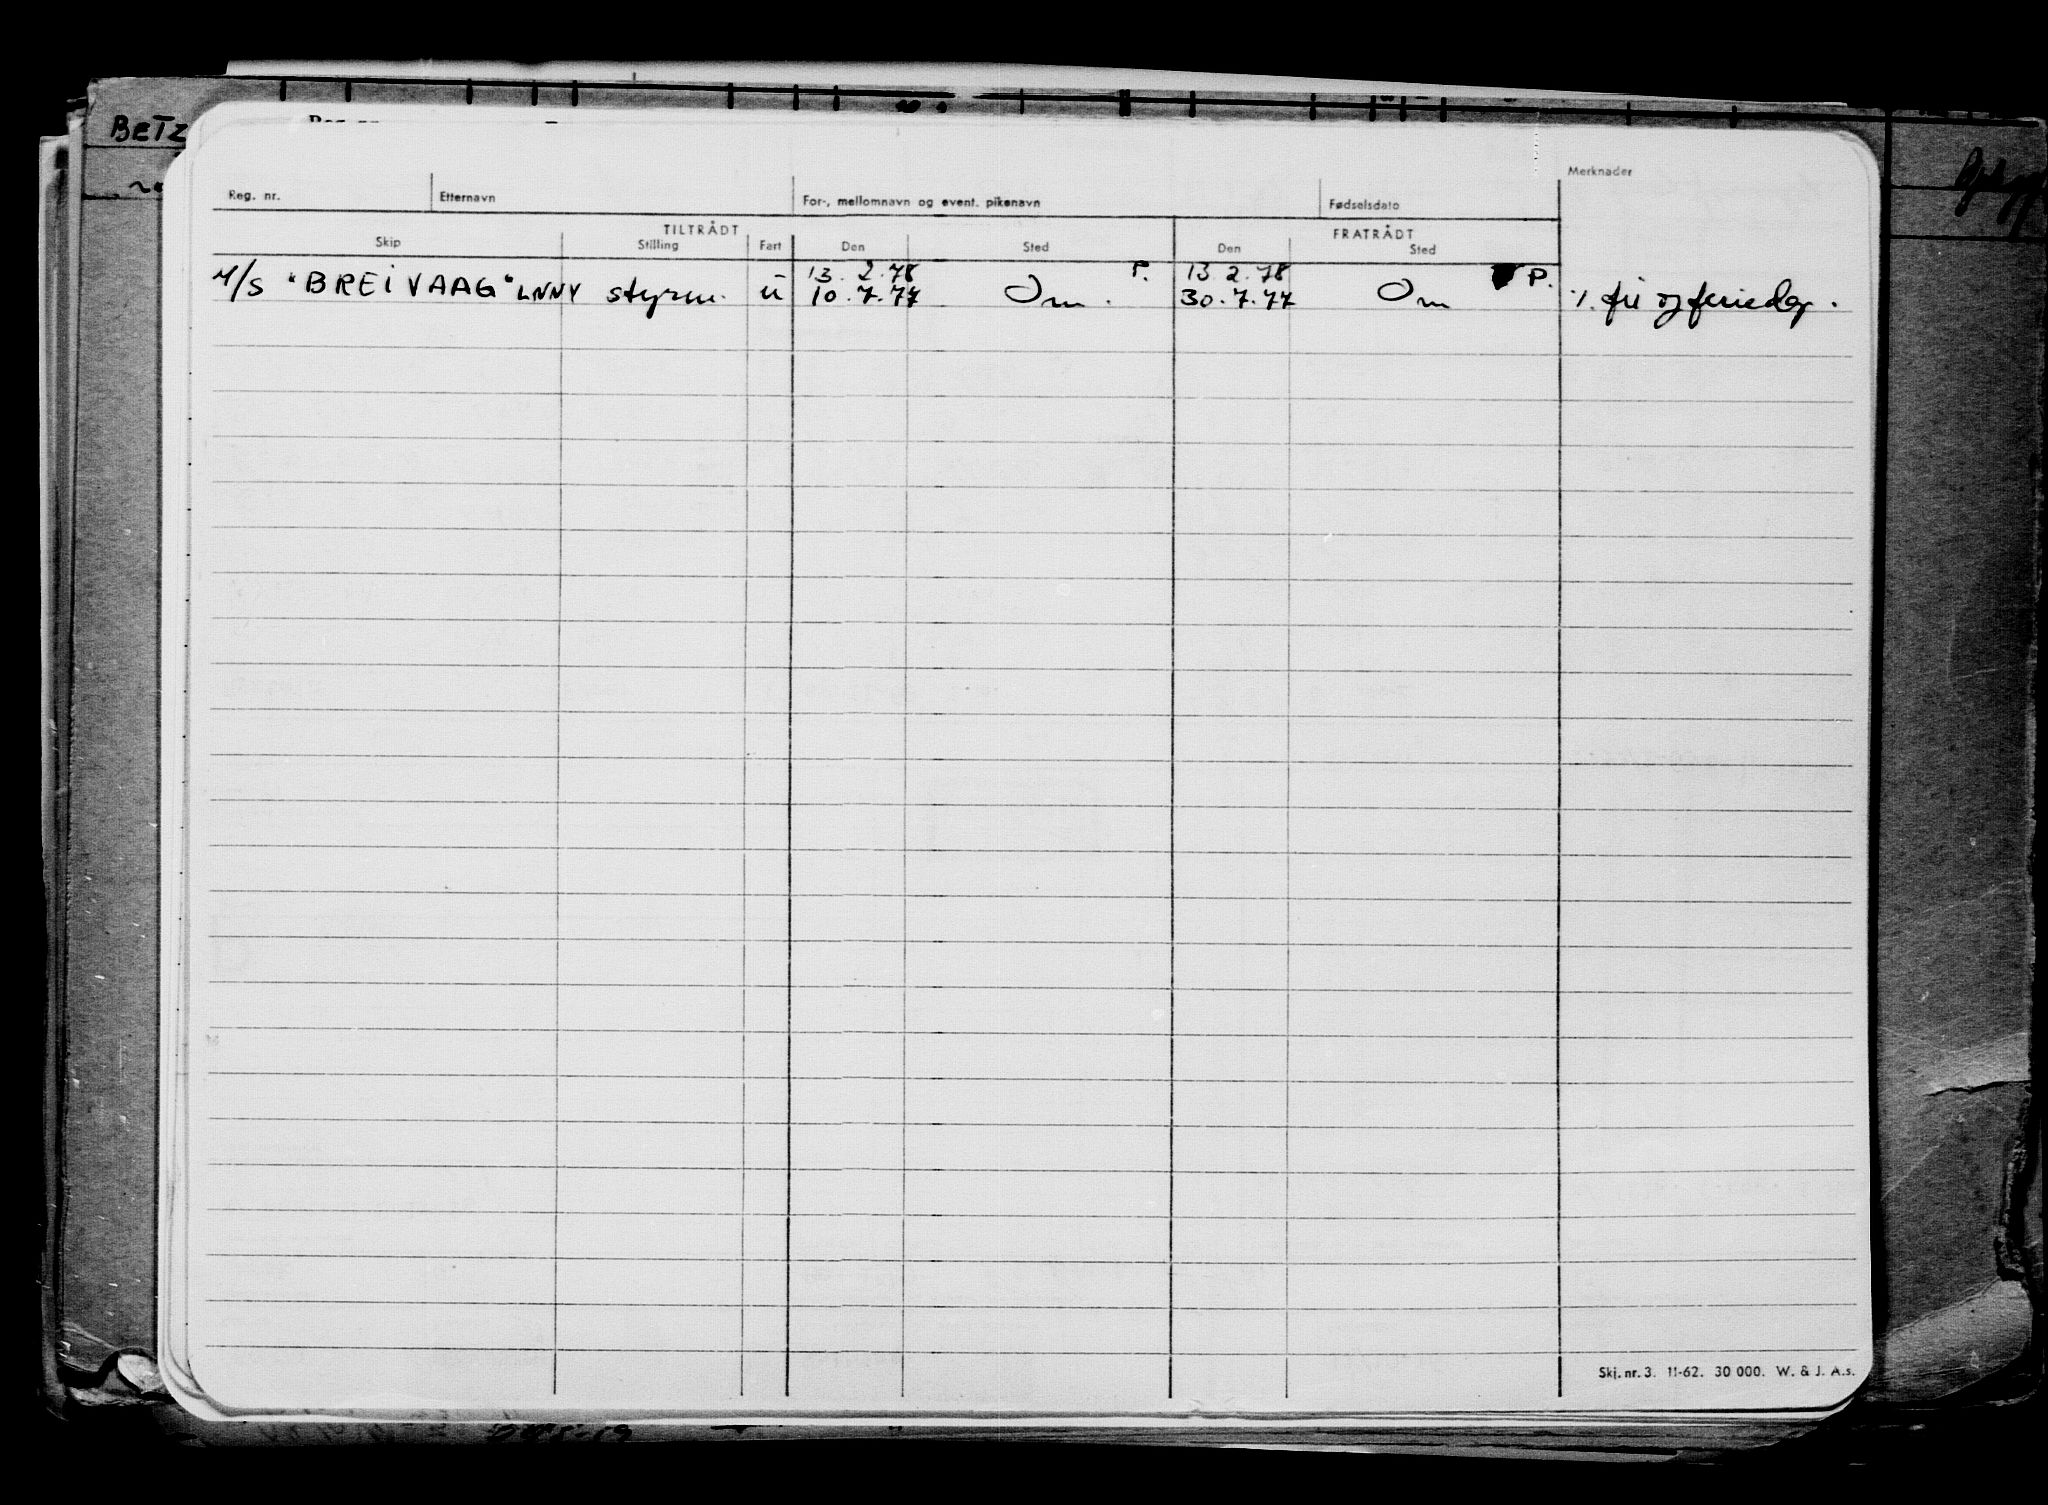 BETZ
Merknader
Reg. nr. Etternavn For-, mellomnavn og event. pikenavn Fødselsdato
TILTRÅDT FRATRÅDT
Skip Stilling Fart Den Sted Den Sted
13. 2. 78 P. 13. 2. 78 P.
M/S "BREIVAAG" LNNY styrm. u 10. 7. 77 Om. 30. 7. 77 Om 1. fri og feriedag.
Skj. nr. 3. 11-62. 30 000. W. & J. A.s.